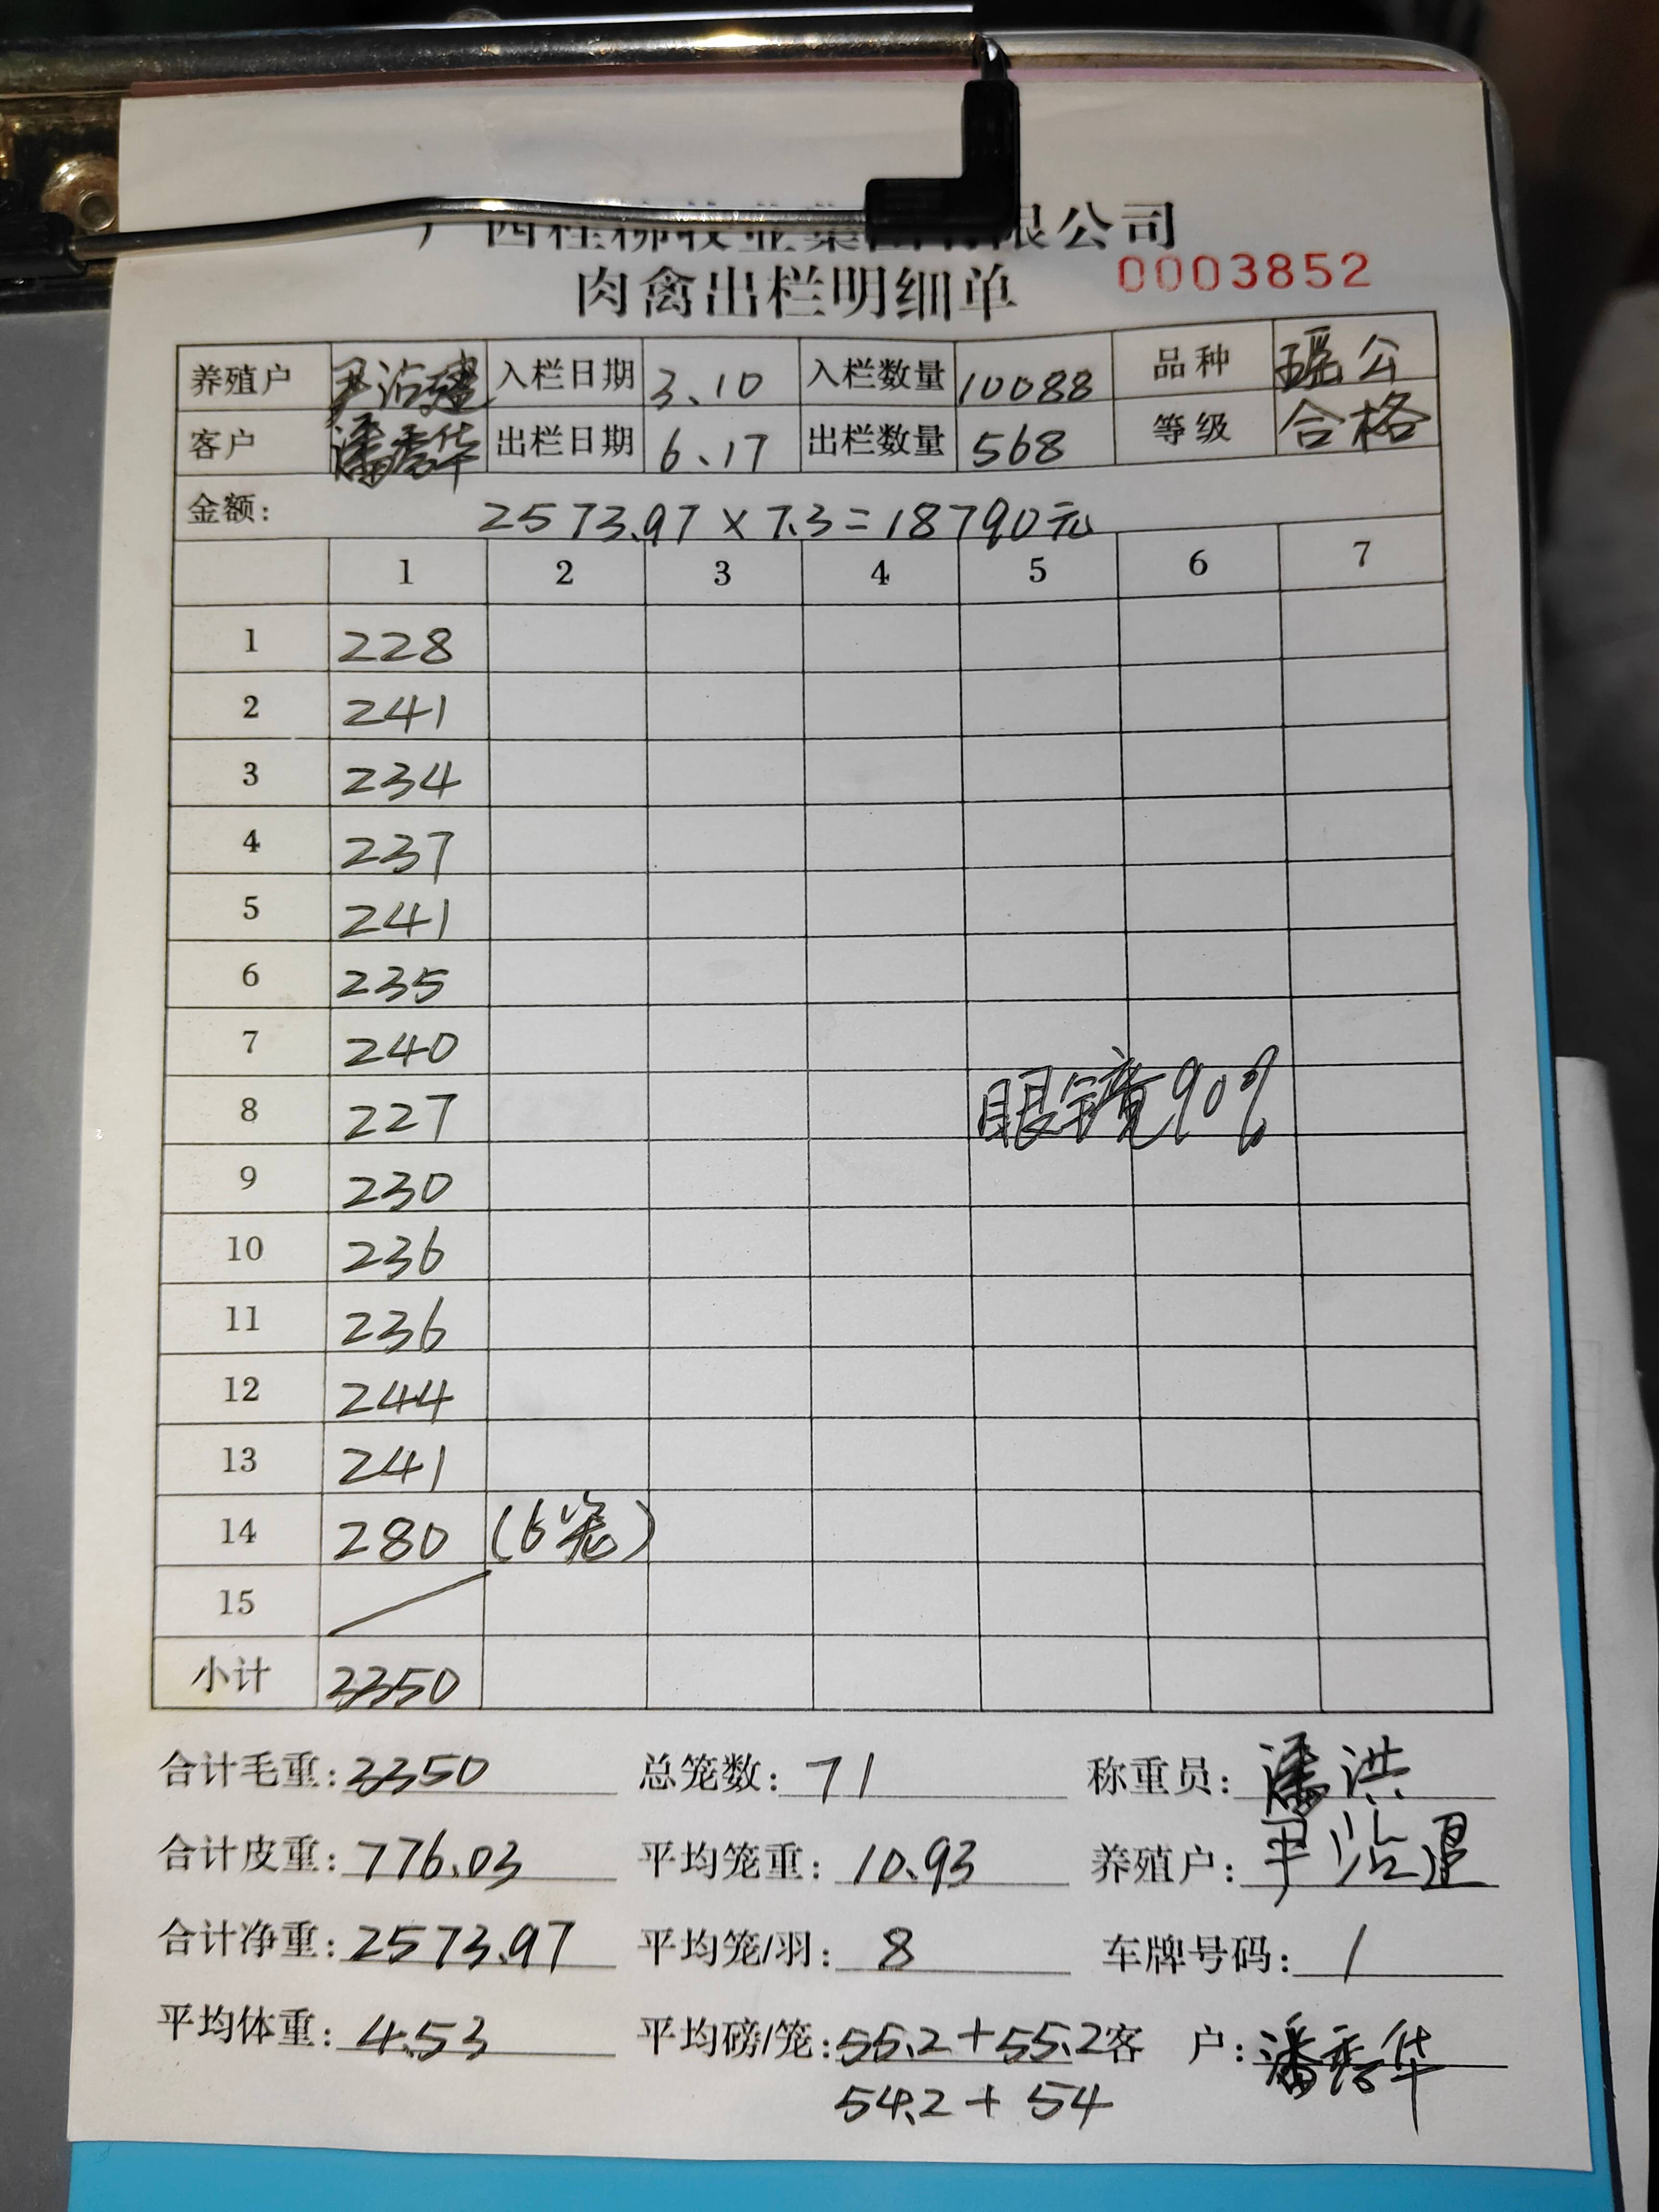 广西桂柳牧业集团有限公司
肉禽出栏明细单 0003852
养殖户 入栏日期 3.10 入栏数量 10088 品种 瑶公
客户 潘秀华 出栏日期 6.17 出栏数量 568 等级 合格
金额: 2573.97×7.3=18790元
1 2 3 4 5 6 7
1 228
2 241
3 234
4 237
5 241
6 235
7 240
8 227 眼镜90%
9 230
10 236
11 236
12 244
13 241
14 280 (6笼)
15
小计 3350
合计毛重: 3350 总笼数: 71 称重员: 潘洪
合计皮重: 776.03 平均笼重: 10.93 养殖户:
合计净重: 2573.97 平均笼/羽: 8 车牌号码: 1
平均体重: 4.53 平均磅/笼: 55.2+55.2 客 户: 潘秀华
54.2+54